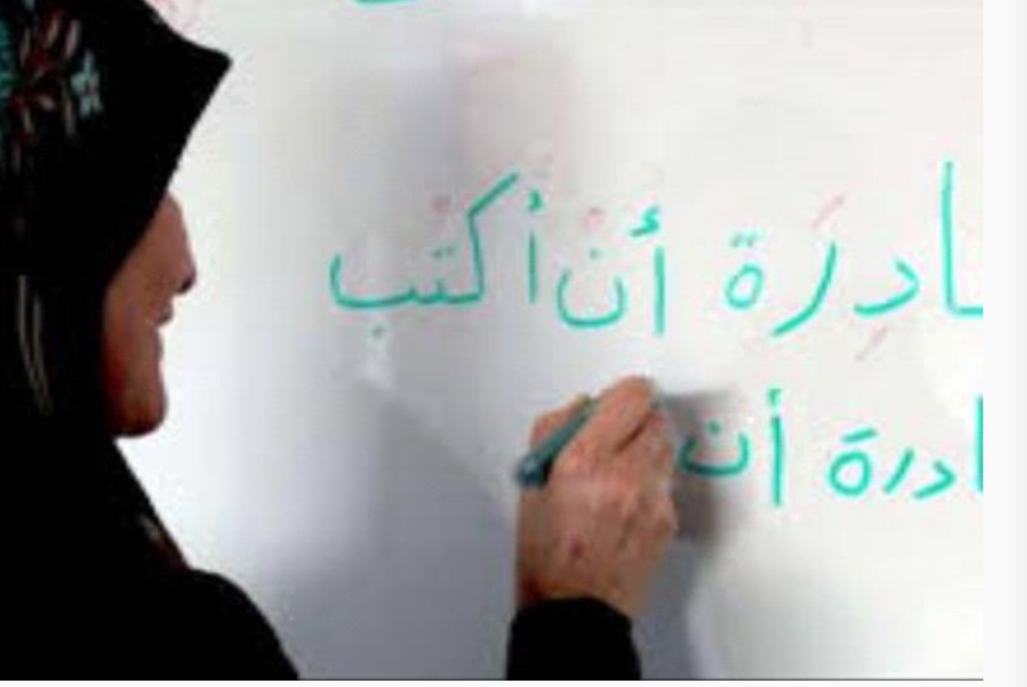 ادِرَة أن أكتب
ادرة أن